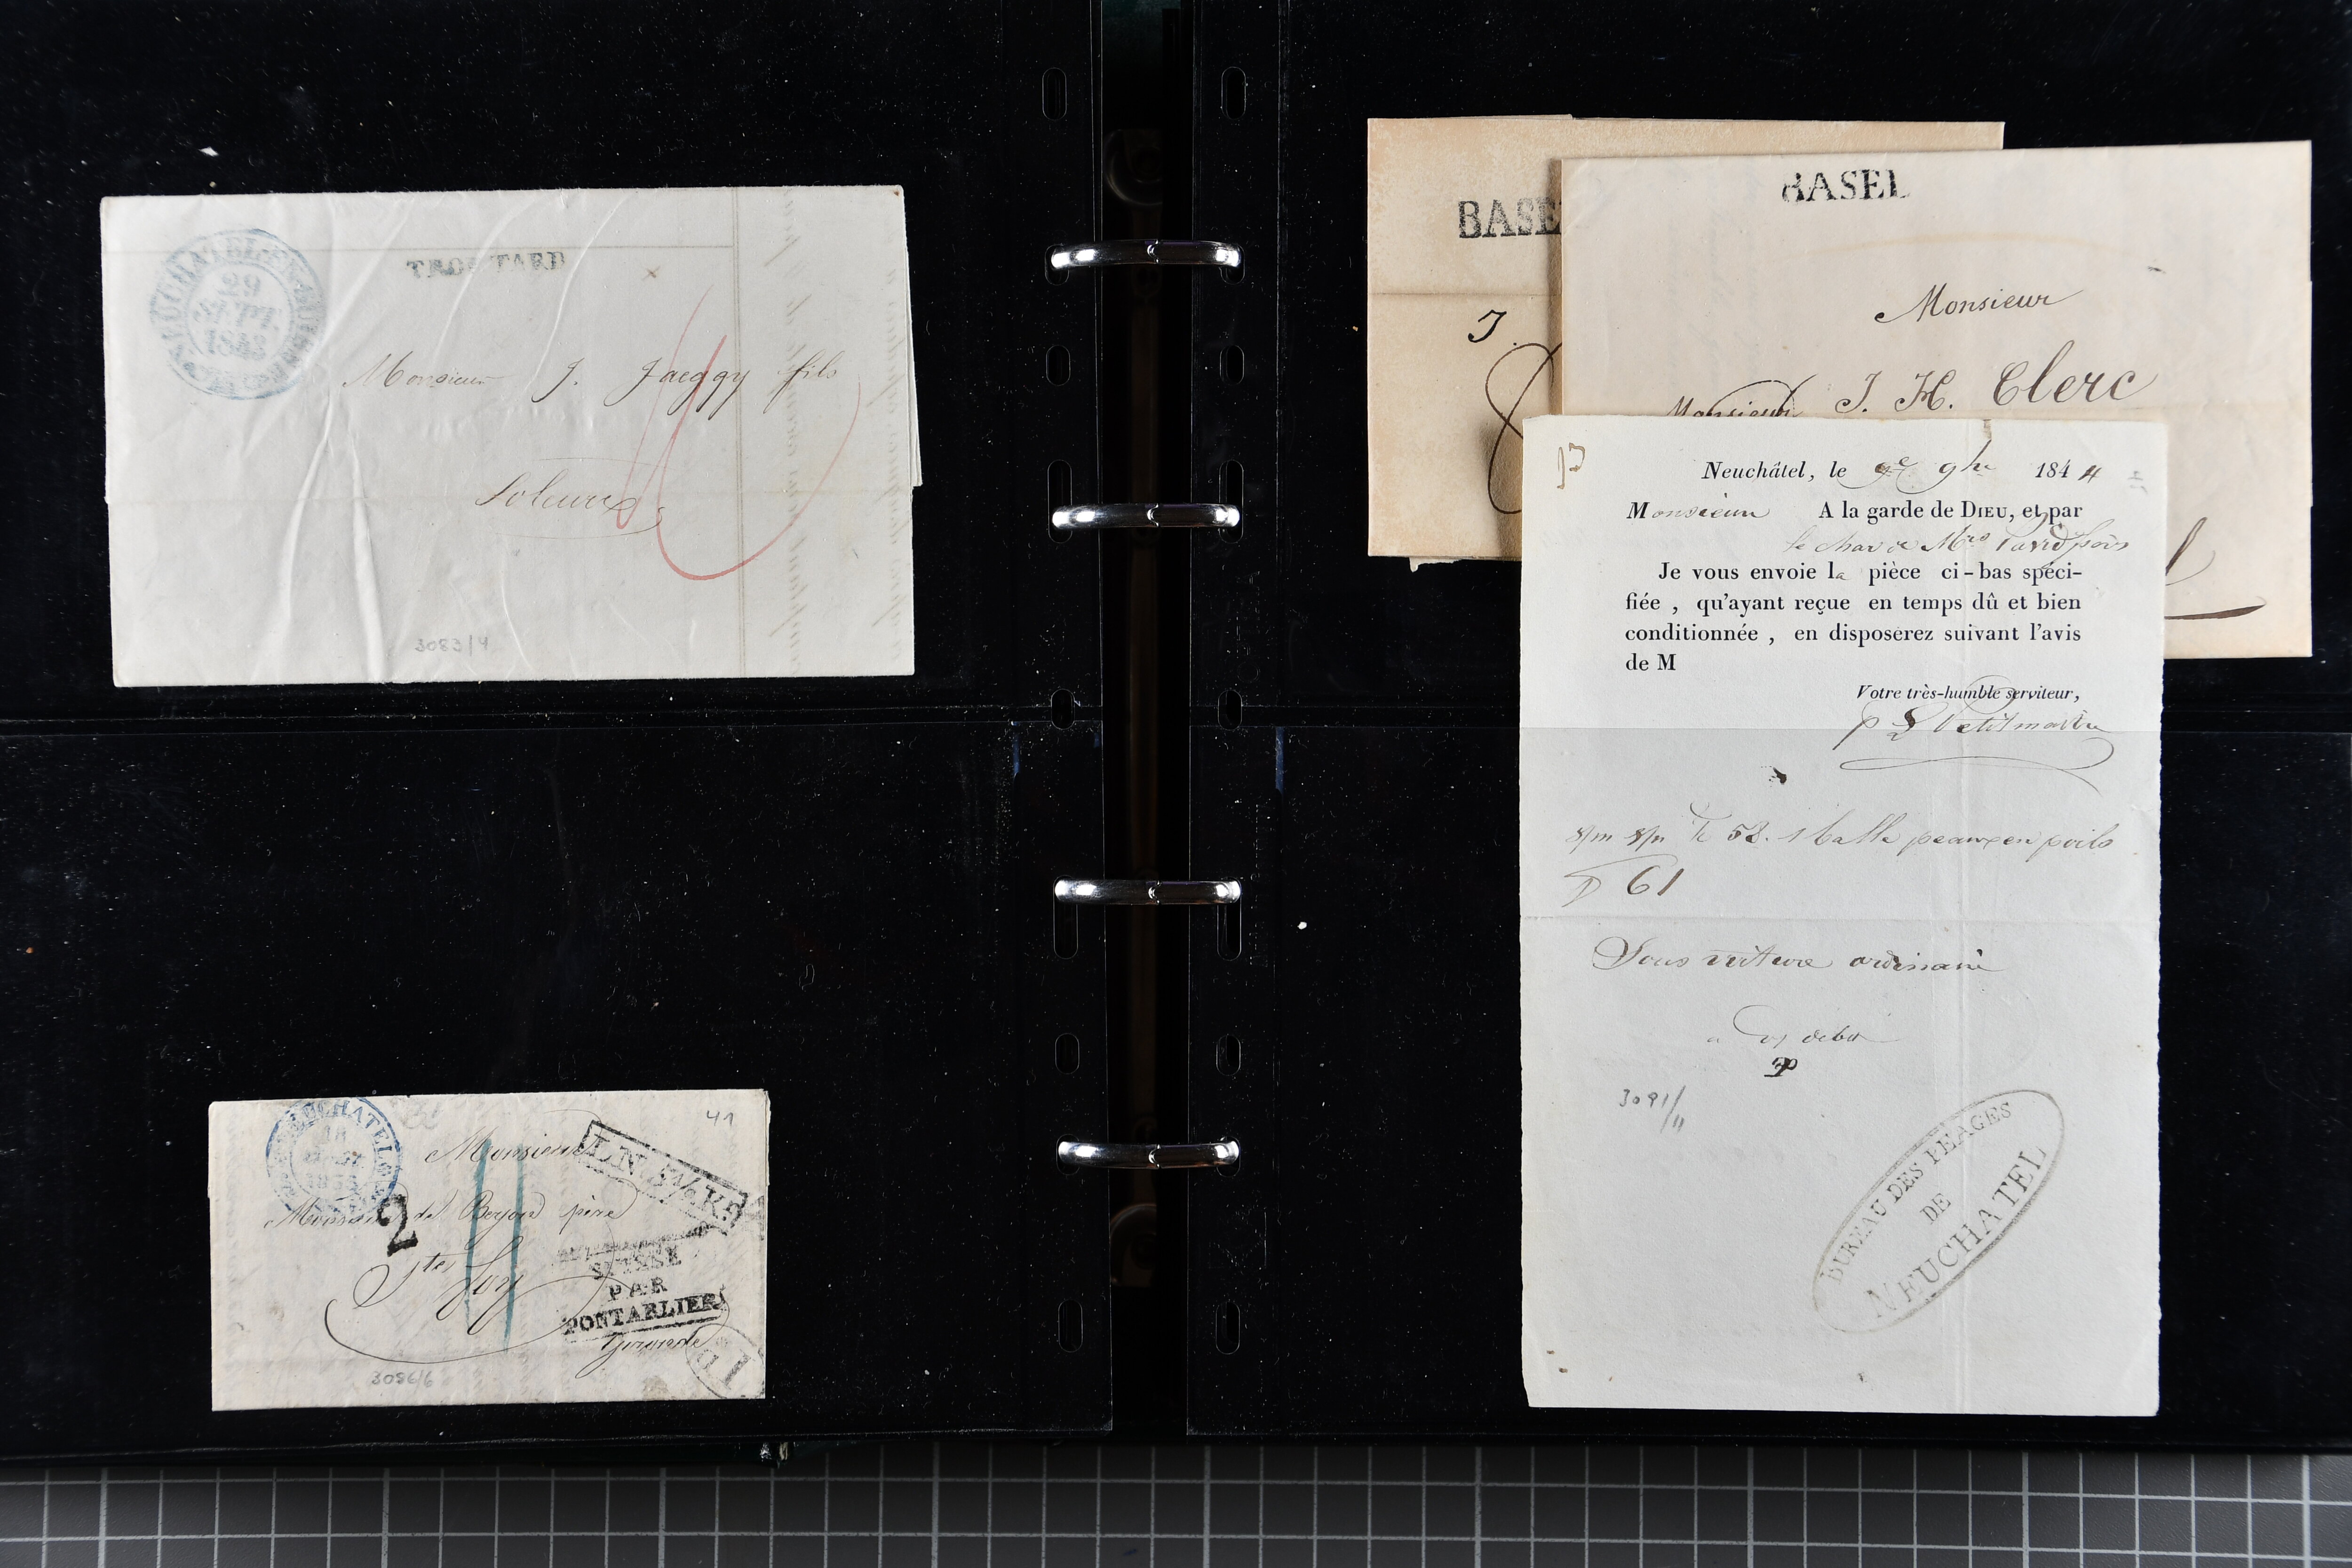 NEUCHATEL
29
SEPT.
1843
TROP TARD
Monsieur J. Jaeggy fils
Soleure
3083/4
NEUCHATEL
18
2
41
Monsieur
Monsieur de Beyon père
Ste Foy
Gironde
L.N.5⅖K.
SUISSE
PAR
PONTARLIER
1 D
3086/6
BASEL
J.
BASEL
Monsieur
J. H. Clerc
Monsieur
Neuchâtel, le 9e 9bre 1844
Monsieur A la garde de DIEU, et par
le char de Mrs
Je vous envoie la pièce ci-bas spéci-
fiée, qu'ayant reçue en temps dû et bien
conditionnée, en disposerez suivant l'avis
de M
Votre très-humble serviteur,
Petitmaitre
58. 1 balle peaux en poils
61
Sous voiture ordinaire
3091/11
BUREAU DES PEAGES
DE
NEUCHATEL